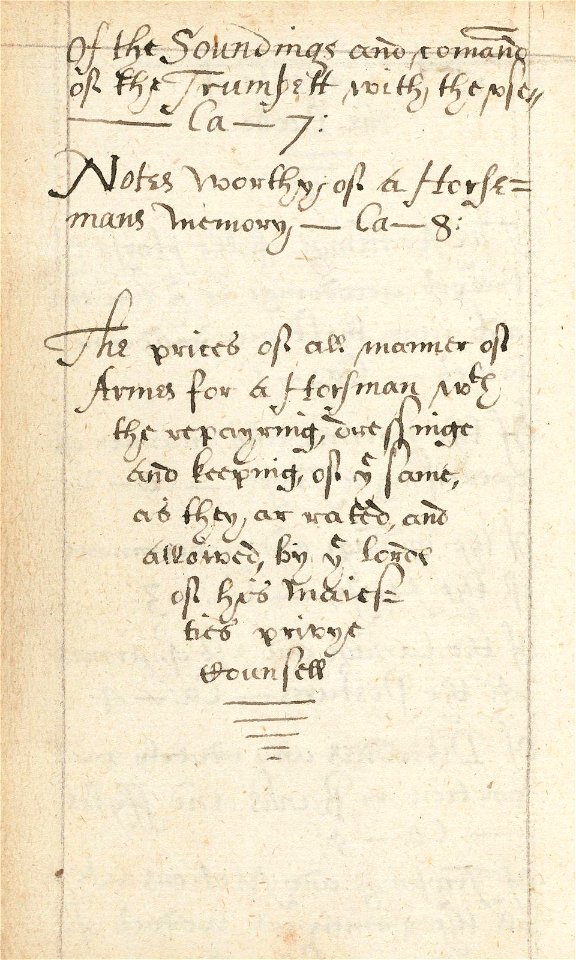 Of the Soundings and comand
of the Trumpett with the vse,,
— Ca — 7:
Notes worthy of a Horse=
mans memory, — Ca — 8:
The prices of all manner of
Armes for a Horsman wth
the repayring, dressinge
and keeping, of ye same,
as they, ar rated, and
allowed, by ye lordes
of his Maies=
ties privye
Counsell